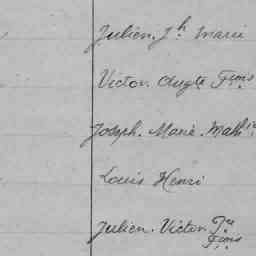 Julien. Jh Marie
Victor. Augte Fçois
Joseph. Marie. Math
Louis Henri
Julien. Victor.
Fçois